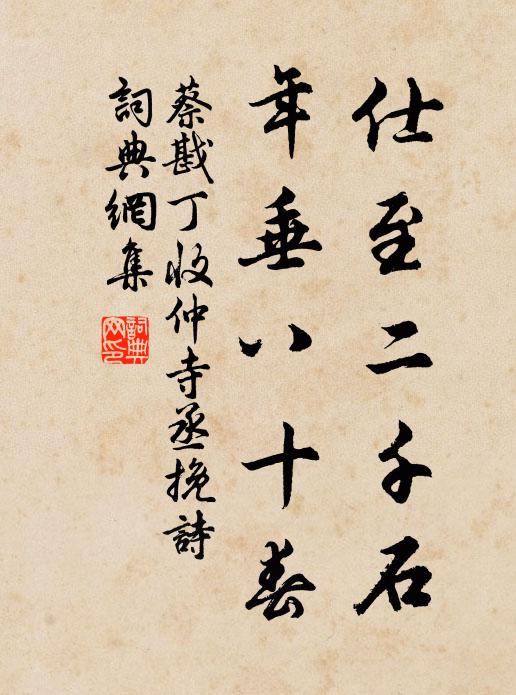 仕至二千石
年垂八十春
蔡戡丁收仲寺丞挽詩
詞典網集
詞典网印